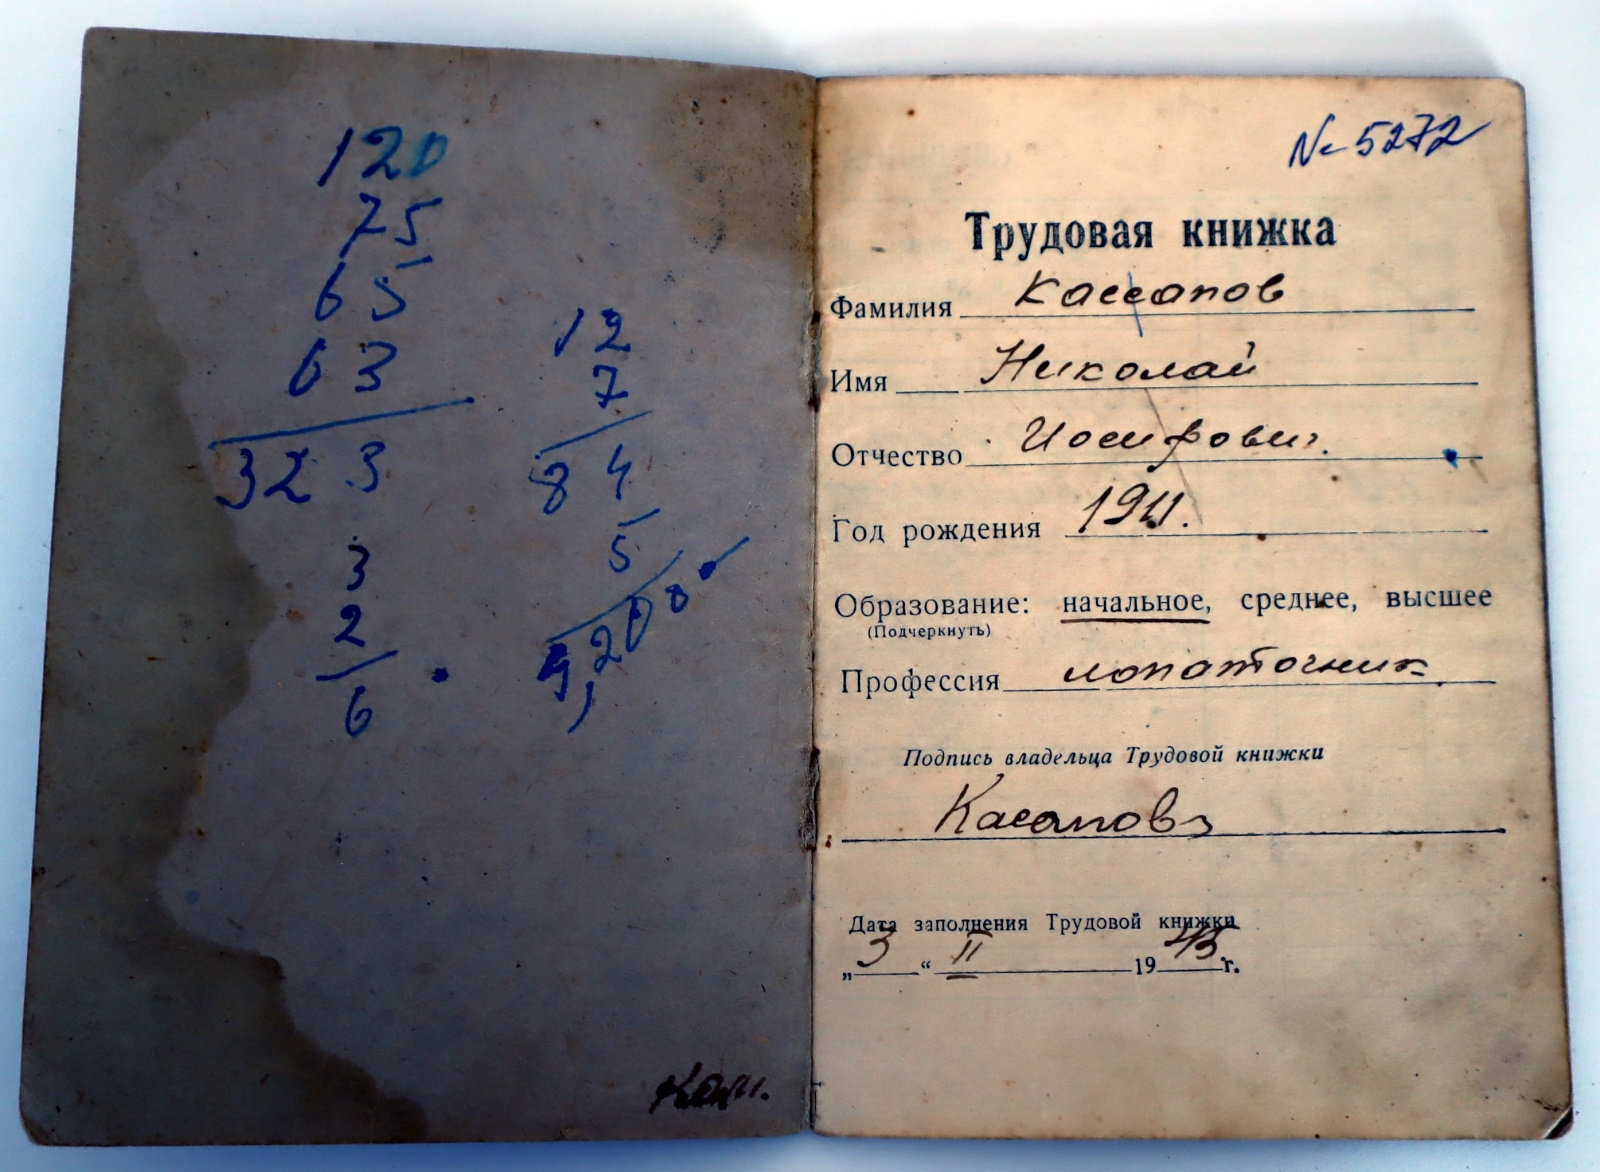 120
75
65
63
323
3
2
6
12
7
84
5
№ 5272
Трудовая книжка
Фамилия Кассапов
Имя Николай
Отчество Иосифович.
Год рождения 1911.
Образование: начальное, среднее, высшее
(Подчеркнуть)
Профессия лопаточник.
Подпись владельца Трудовой книжки
Касапов
Дата заполнения Трудовой книжки
„3“ II 1945 г.